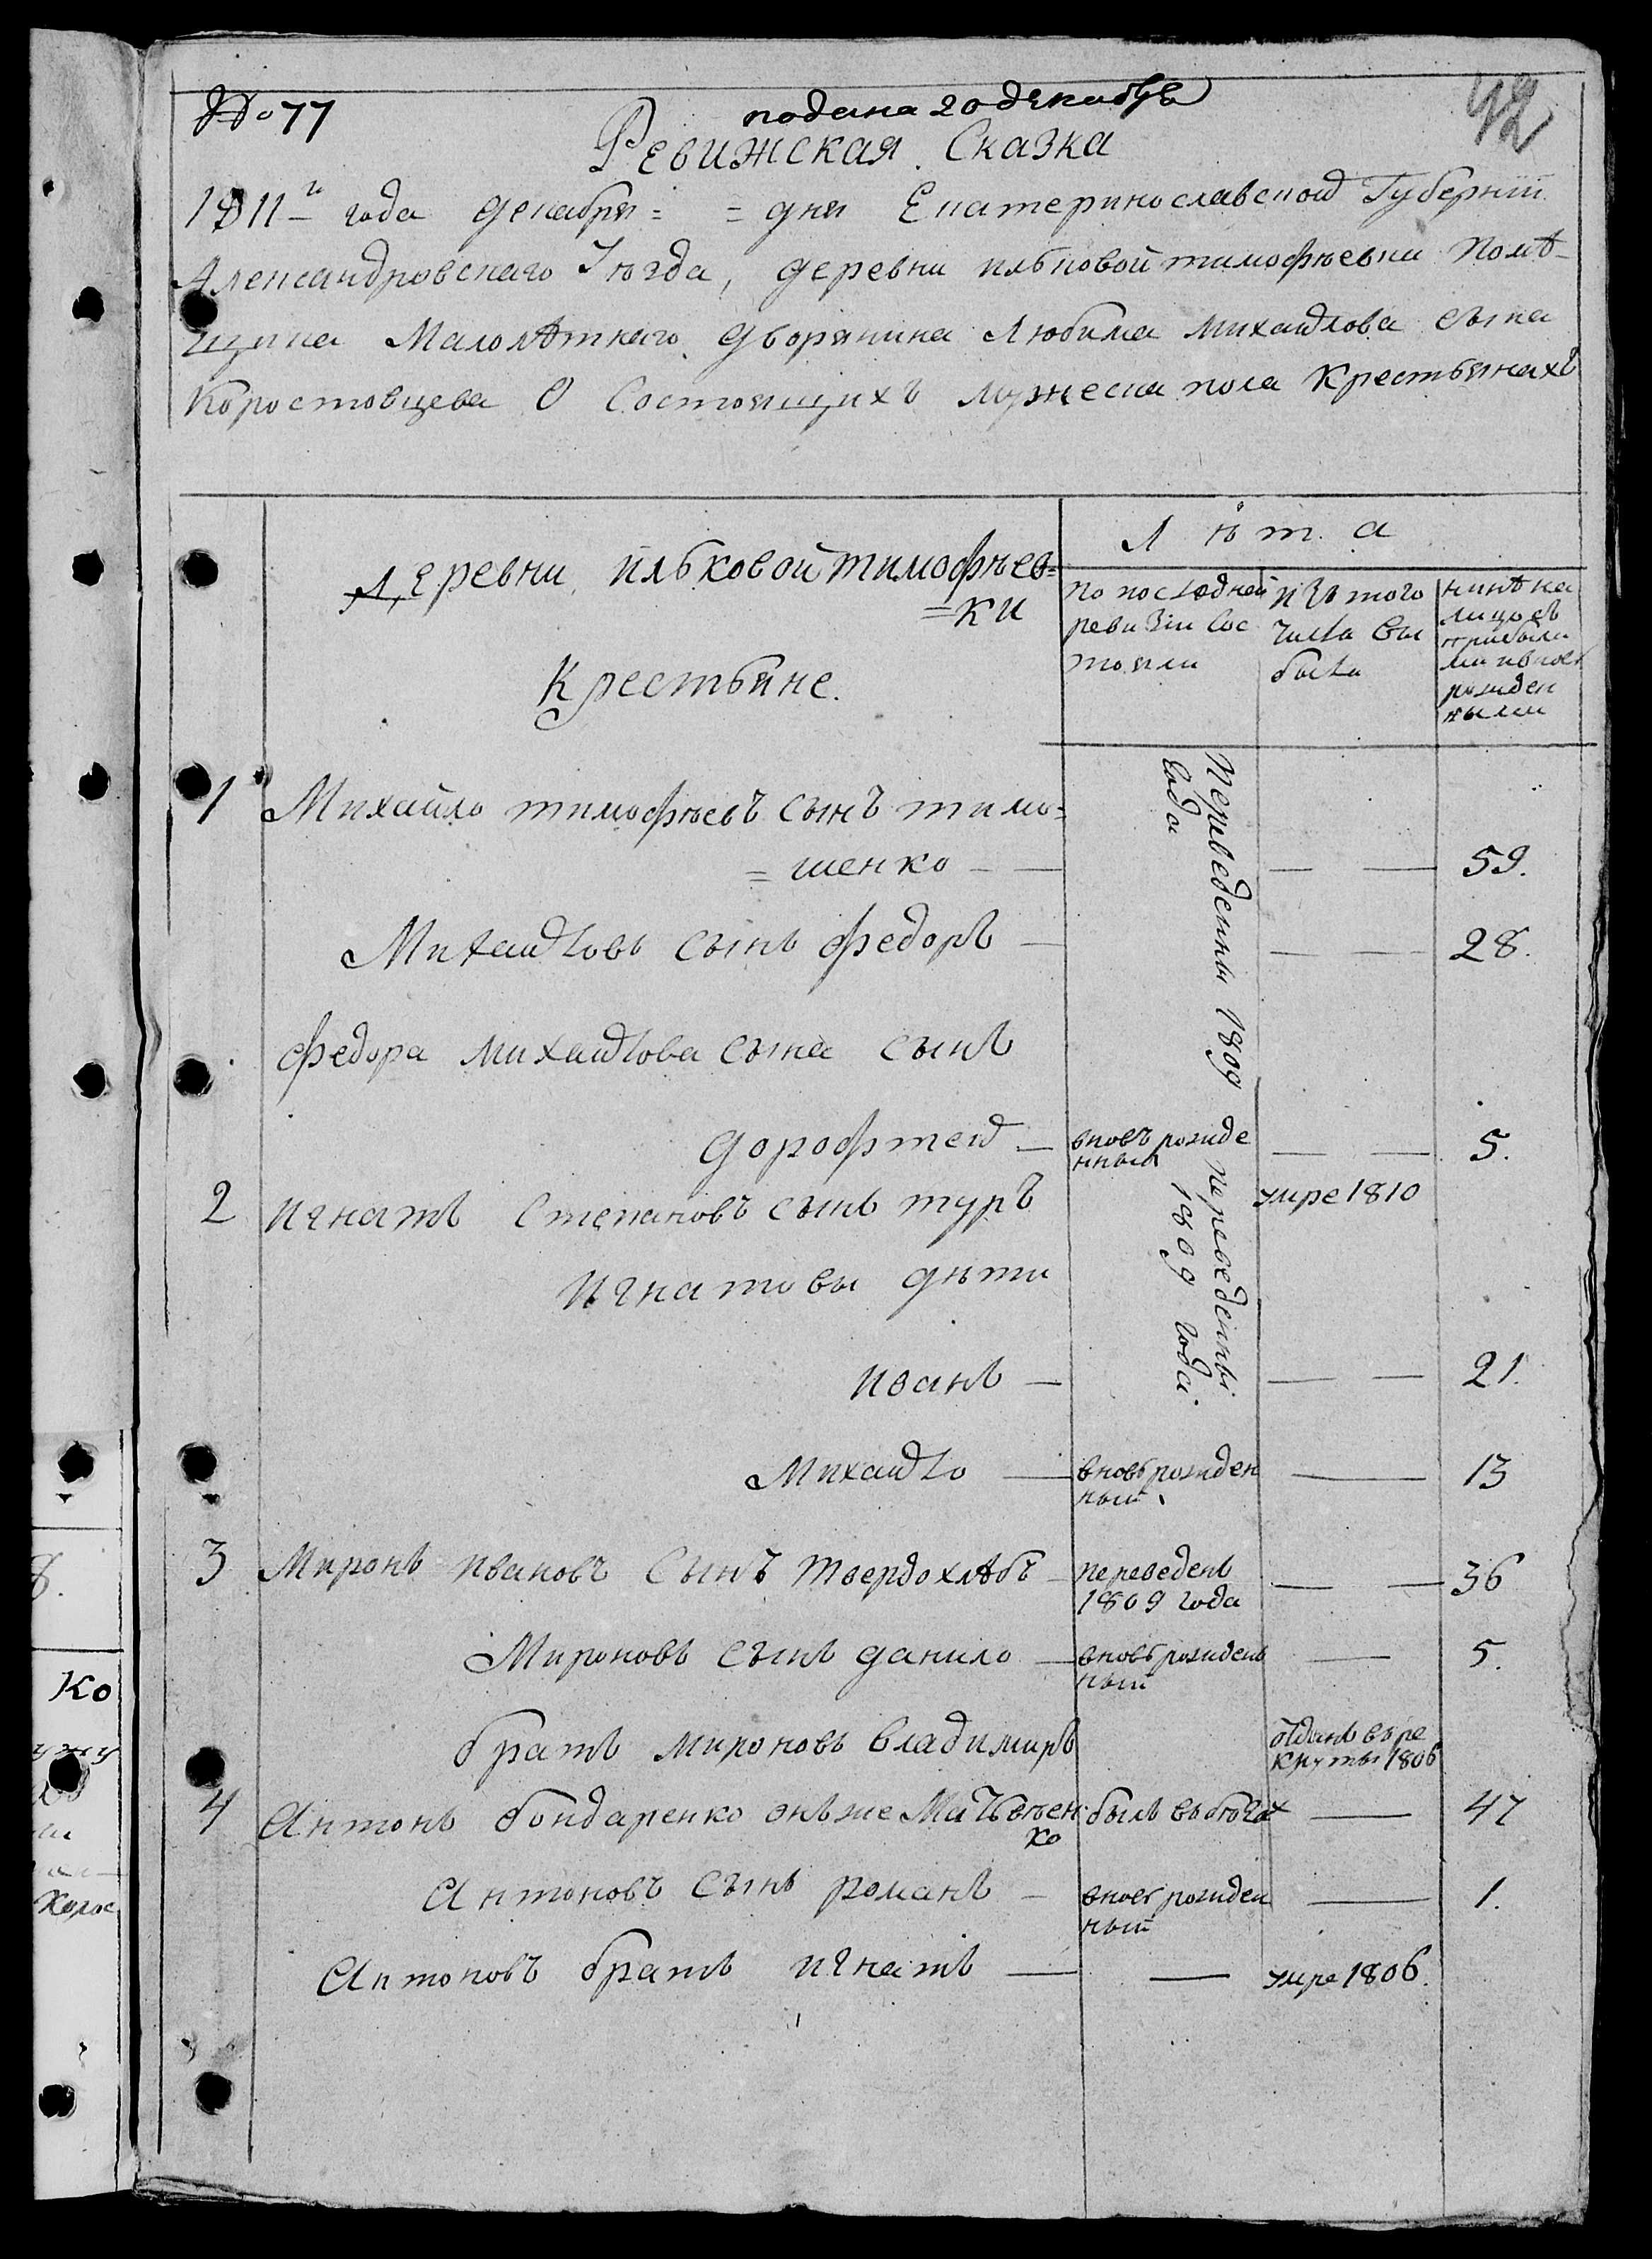 № 77
подана 20 декабря
42
Ревижская Сказка
1811го года декабря = = дня Екатеринославской Губернїи
Александровскаго уѣзда, деревни ильковой тимофѣевки Помѣ-
щика Малолѣтнаго дворянина Любима Михайлова сына
Коростовцева О Состоящихъ мужеска пола Крестьянахъ
Лѣта
Деревни ильковой тимофѣев=
=ки
Крестьяне.
по последней
ревизїи сос
тояли
изъ того
числа вы
было
нинѣ на
лицо съ
прибыли
ми и внов
рожден
ными
Переведенны 1809
года
1 Михайло тимофѣевъ сынъ тимо=
=шенко — — — 59.
Михайловъ сынъ федоръ — — — 28.
федора михайлова сына сынъ
дорофтей — вновъ рожде
нный — — 5.
переведенны
1809 года.
2 игнатъ степановъ сынъ туръ умре 1810
игнатовы дѣти
иванъ — — — 21.
михайло — вновь рожден
ный — 13
3 Миронъ ивановъ сынъ твердохлѣбъ — переведенъ
1809 года — — 36
Мироновъ сынъ данило — вновь рожден
ный — 5.
братъ мироновъ владимиръ отданъ въ ре
круты 1806
4 Антонъ бондаренко онъ же Матвѣен
ко былъ въ бѣгах — 47
Антоновъ сынъ романъ — вновь рожден
ный — 1.
Антоновъ братъ игнатъ — — умре 1806.
Ко
Корос